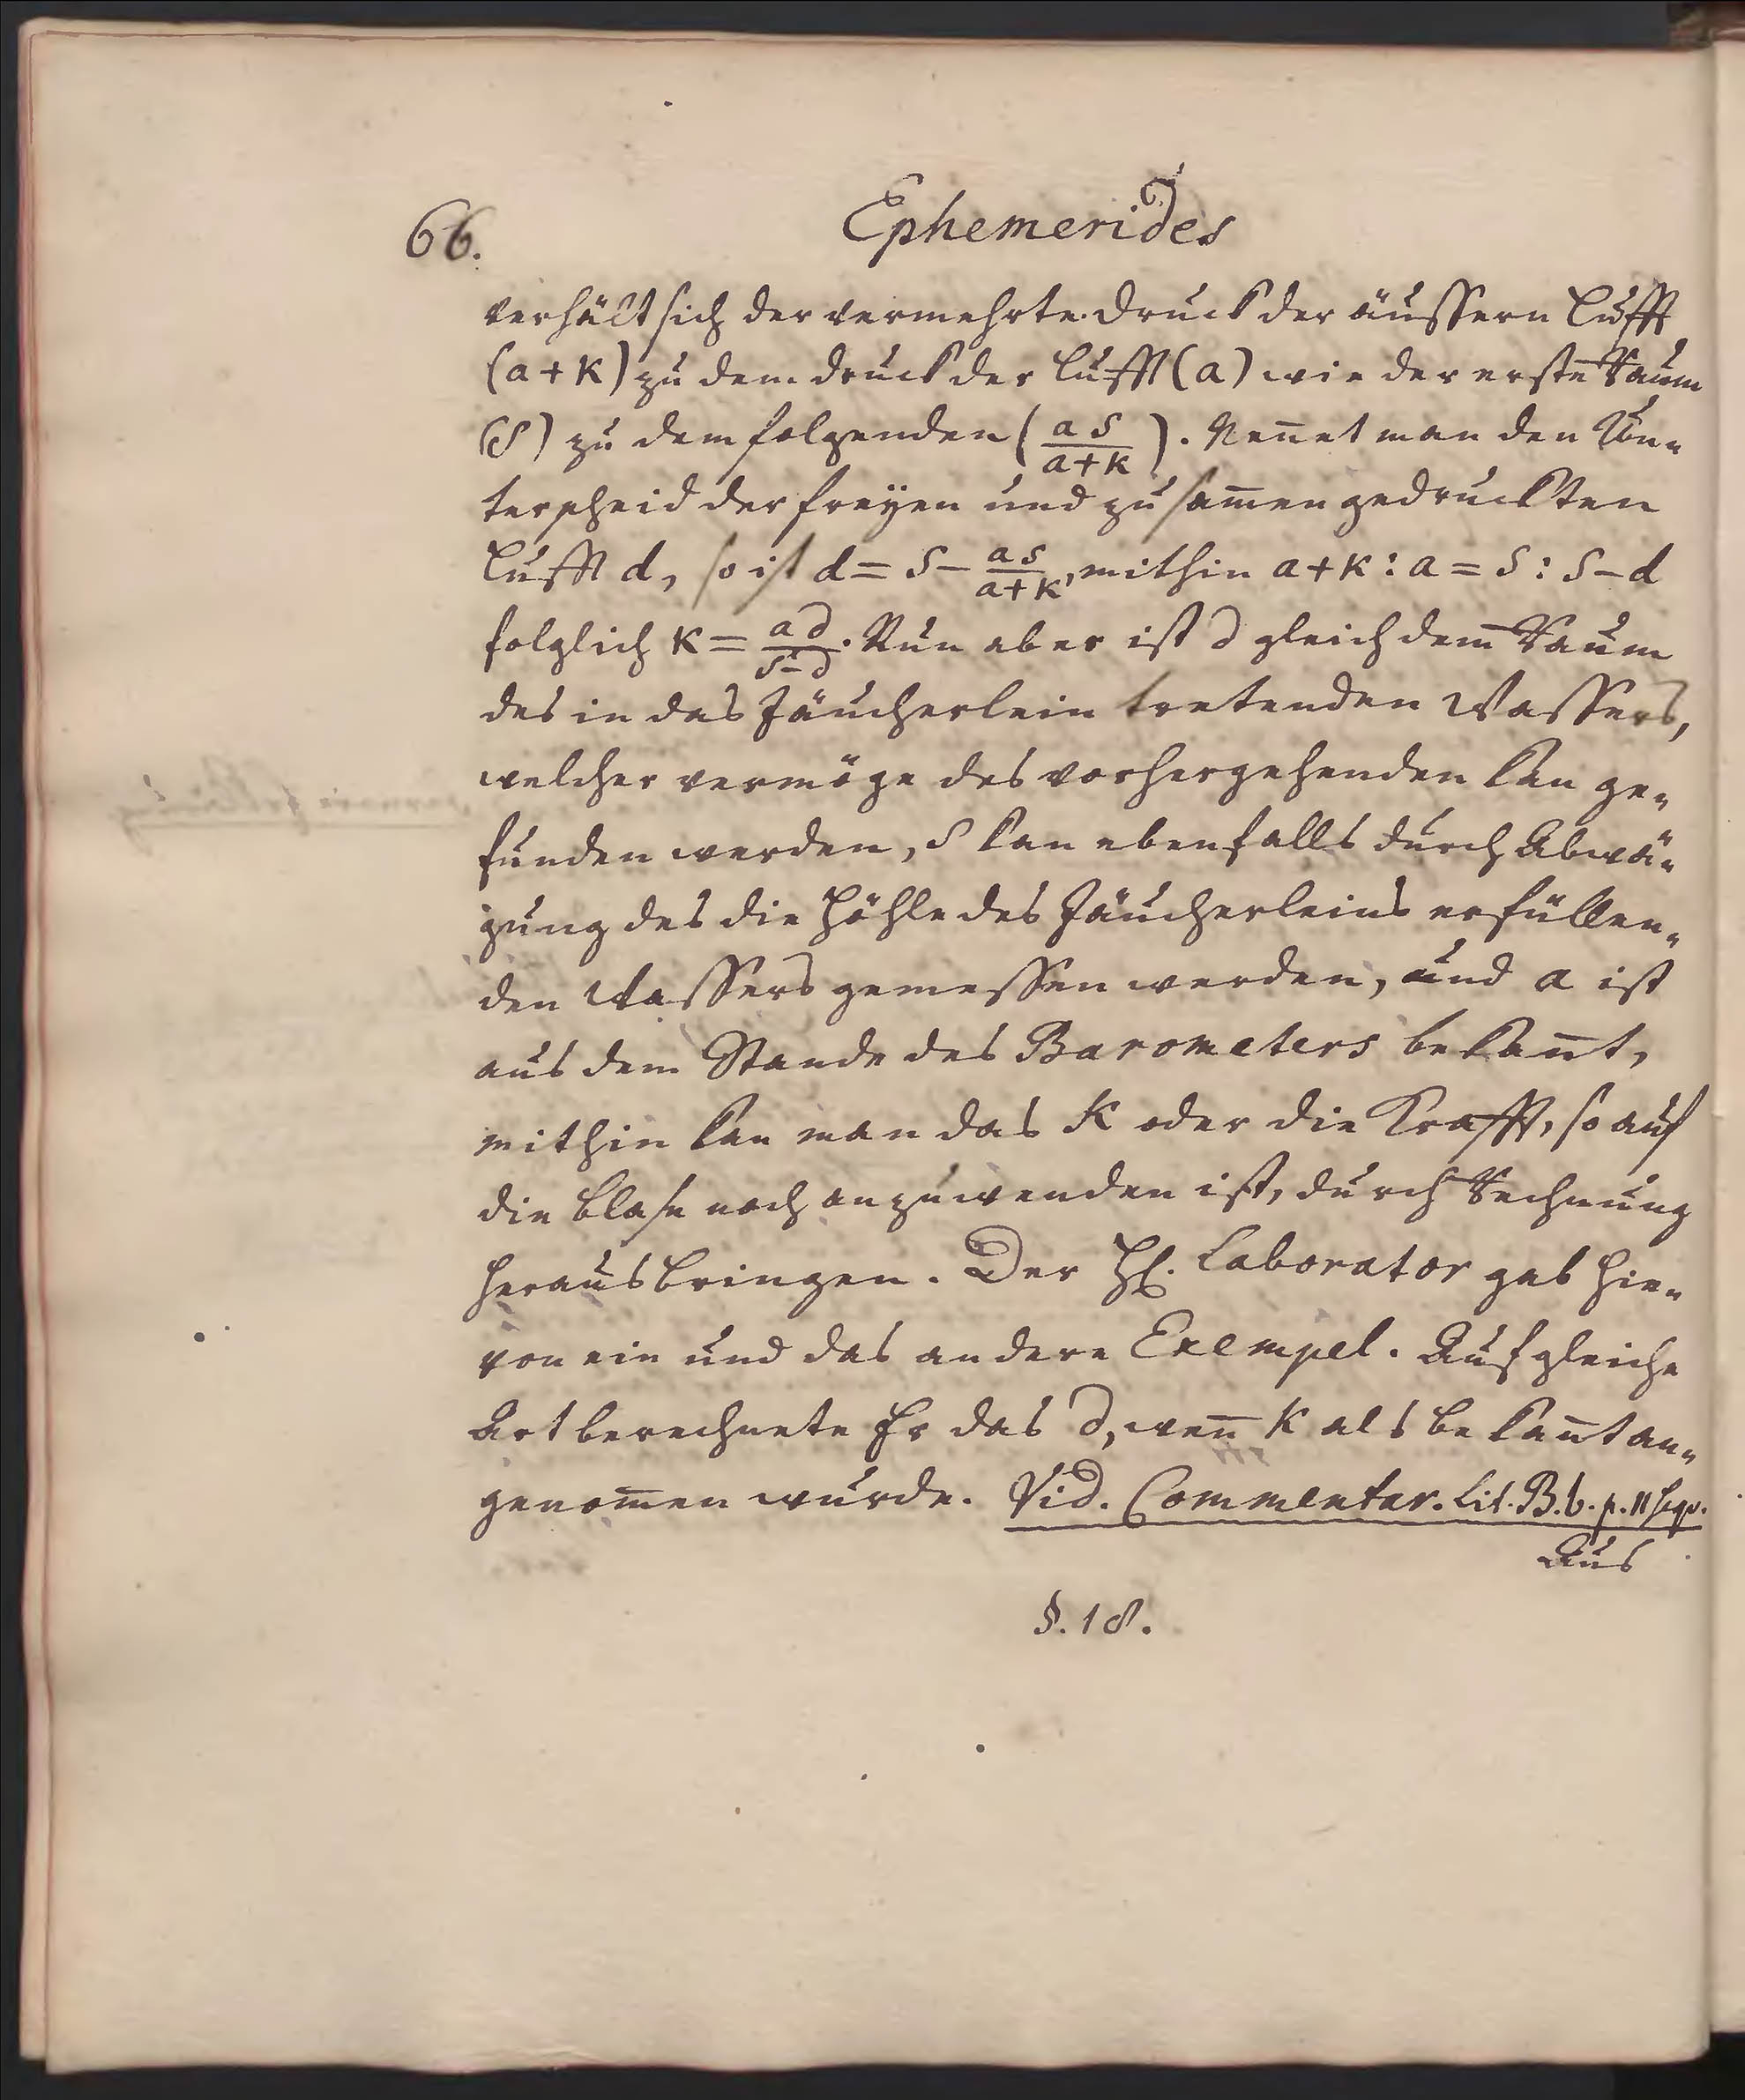 66.
Ephemerides
verhält sich der vermehrte druck der äussern Lufft
(a+k) zu dem druck der Lufft (a) wie der erste Raum
(s) zu dem folgenden (as/a+k). Nen̄et man den Un=
terscheid der freyen und zusam̄en gedruckten
Lufft d, so ist d = s - as/a+k, mithin a+k : a = s : s-d
folglich k = ad/s-d. Nun aber ist d gleich dem Raum
des in das Täucherlein tretenden Wassers,
welcher vermöge des vorhergehenden kan ge=
funden werden, s kan ebenfalls durch Abwä=
gung des die Höhle des Täucherleins erfüllen=
den Wassers gemessen werden, und a ist
aus dem Stande des Barometers bekan̄t,
mithin kan man das K oder die Krafft, so auf
die blase noch anzuwenden ist, durch Rechnung
herausbringen. Der H. Laborator gab hie=
von ein und das andere Exempel. Auf gleiche
Art berechnete Er das d, wen̄ K als bekan̄t an=
genom̄en wurde. Vid. Commentar. Lit. B.b. p. 11 seqv.
Aus
§. 18.